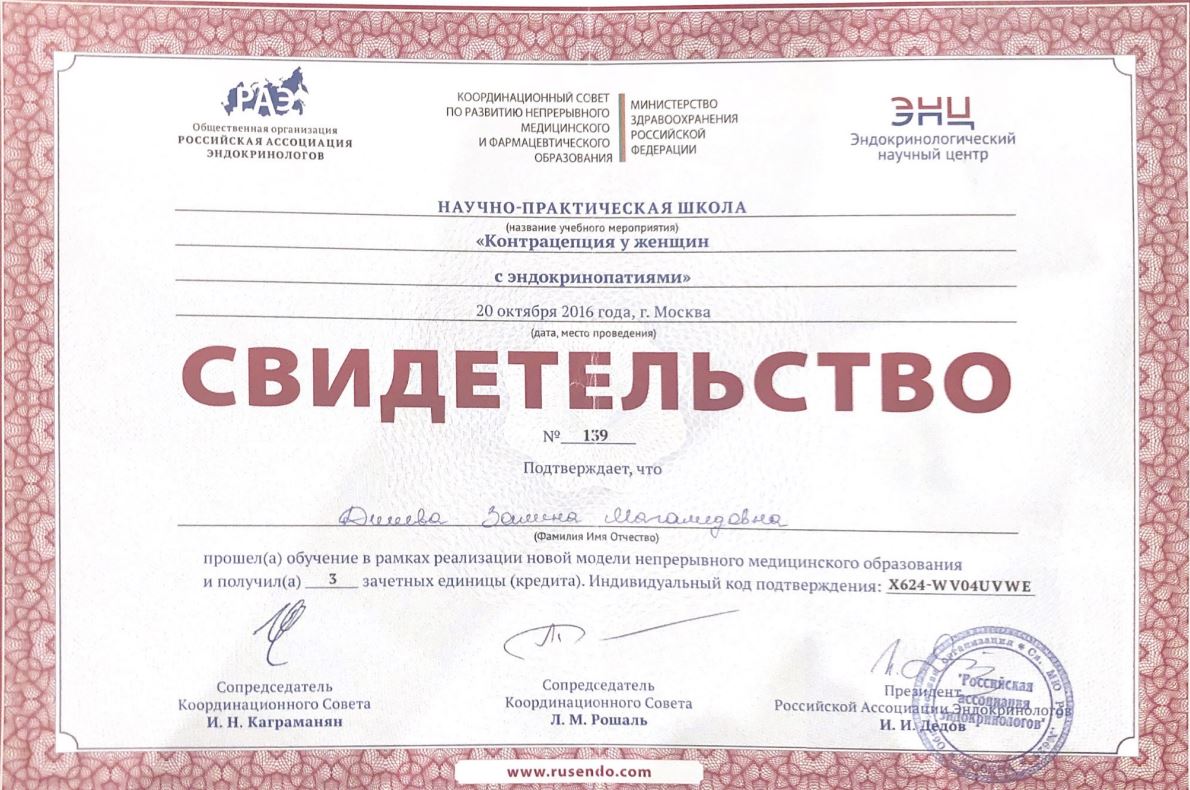 РАЭ
Общественная организация
РОССИЙСКАЯ АССОЦИАЦИЯ
ЭНДОКРИНОЛОГОВ
КООРДИНАЦИОННЫЙ СОВЕТ
ПО РАЗВИТИЮ НЕПРЕРЫВНОГО
МЕДИЦИНСКОГО
И ФАРМАЦЕВТИЧЕСКОГО
ОБРАЗОВАНИЯ
МИНИСТЕРСТВО
ЗДРАВООХРАНЕНИЯ
РОССИЙСКОЙ
ФЕДЕРАЦИИ
ЭНЦ
Эндокринологический
научный центр
НАУЧНО-ПРАКТИЧЕСКАЯ ШКОЛА
(название учебного мероприятия)
«Контрацепция у женщин
с эндокринопатиями»
20 октября 2016 года, г. Москва
(дата, место проведения)
СВИДЕТЕЛЬСТВО
№ 139
Подтверждает, что
Залина Магамедовна
(Фамилия Имя Отчество)
прошел(а) обучение в рамках реализации новой модели непрерывного медицинского образования
и получил(а) 3 зачетных единицы (кредита). Индивидуальный код подтверждения: X624-WV04UVWE
Сопредседатель
Координационного Совета
И. Н. Каграманян
Сопредседатель
Координационного Совета
Л. М. Рошаль
Президент
Российской Ассоциации Эндокринологов
И. И. Дедов
"Российская
ассоциация
эндокринологов"
www.rusendo.com